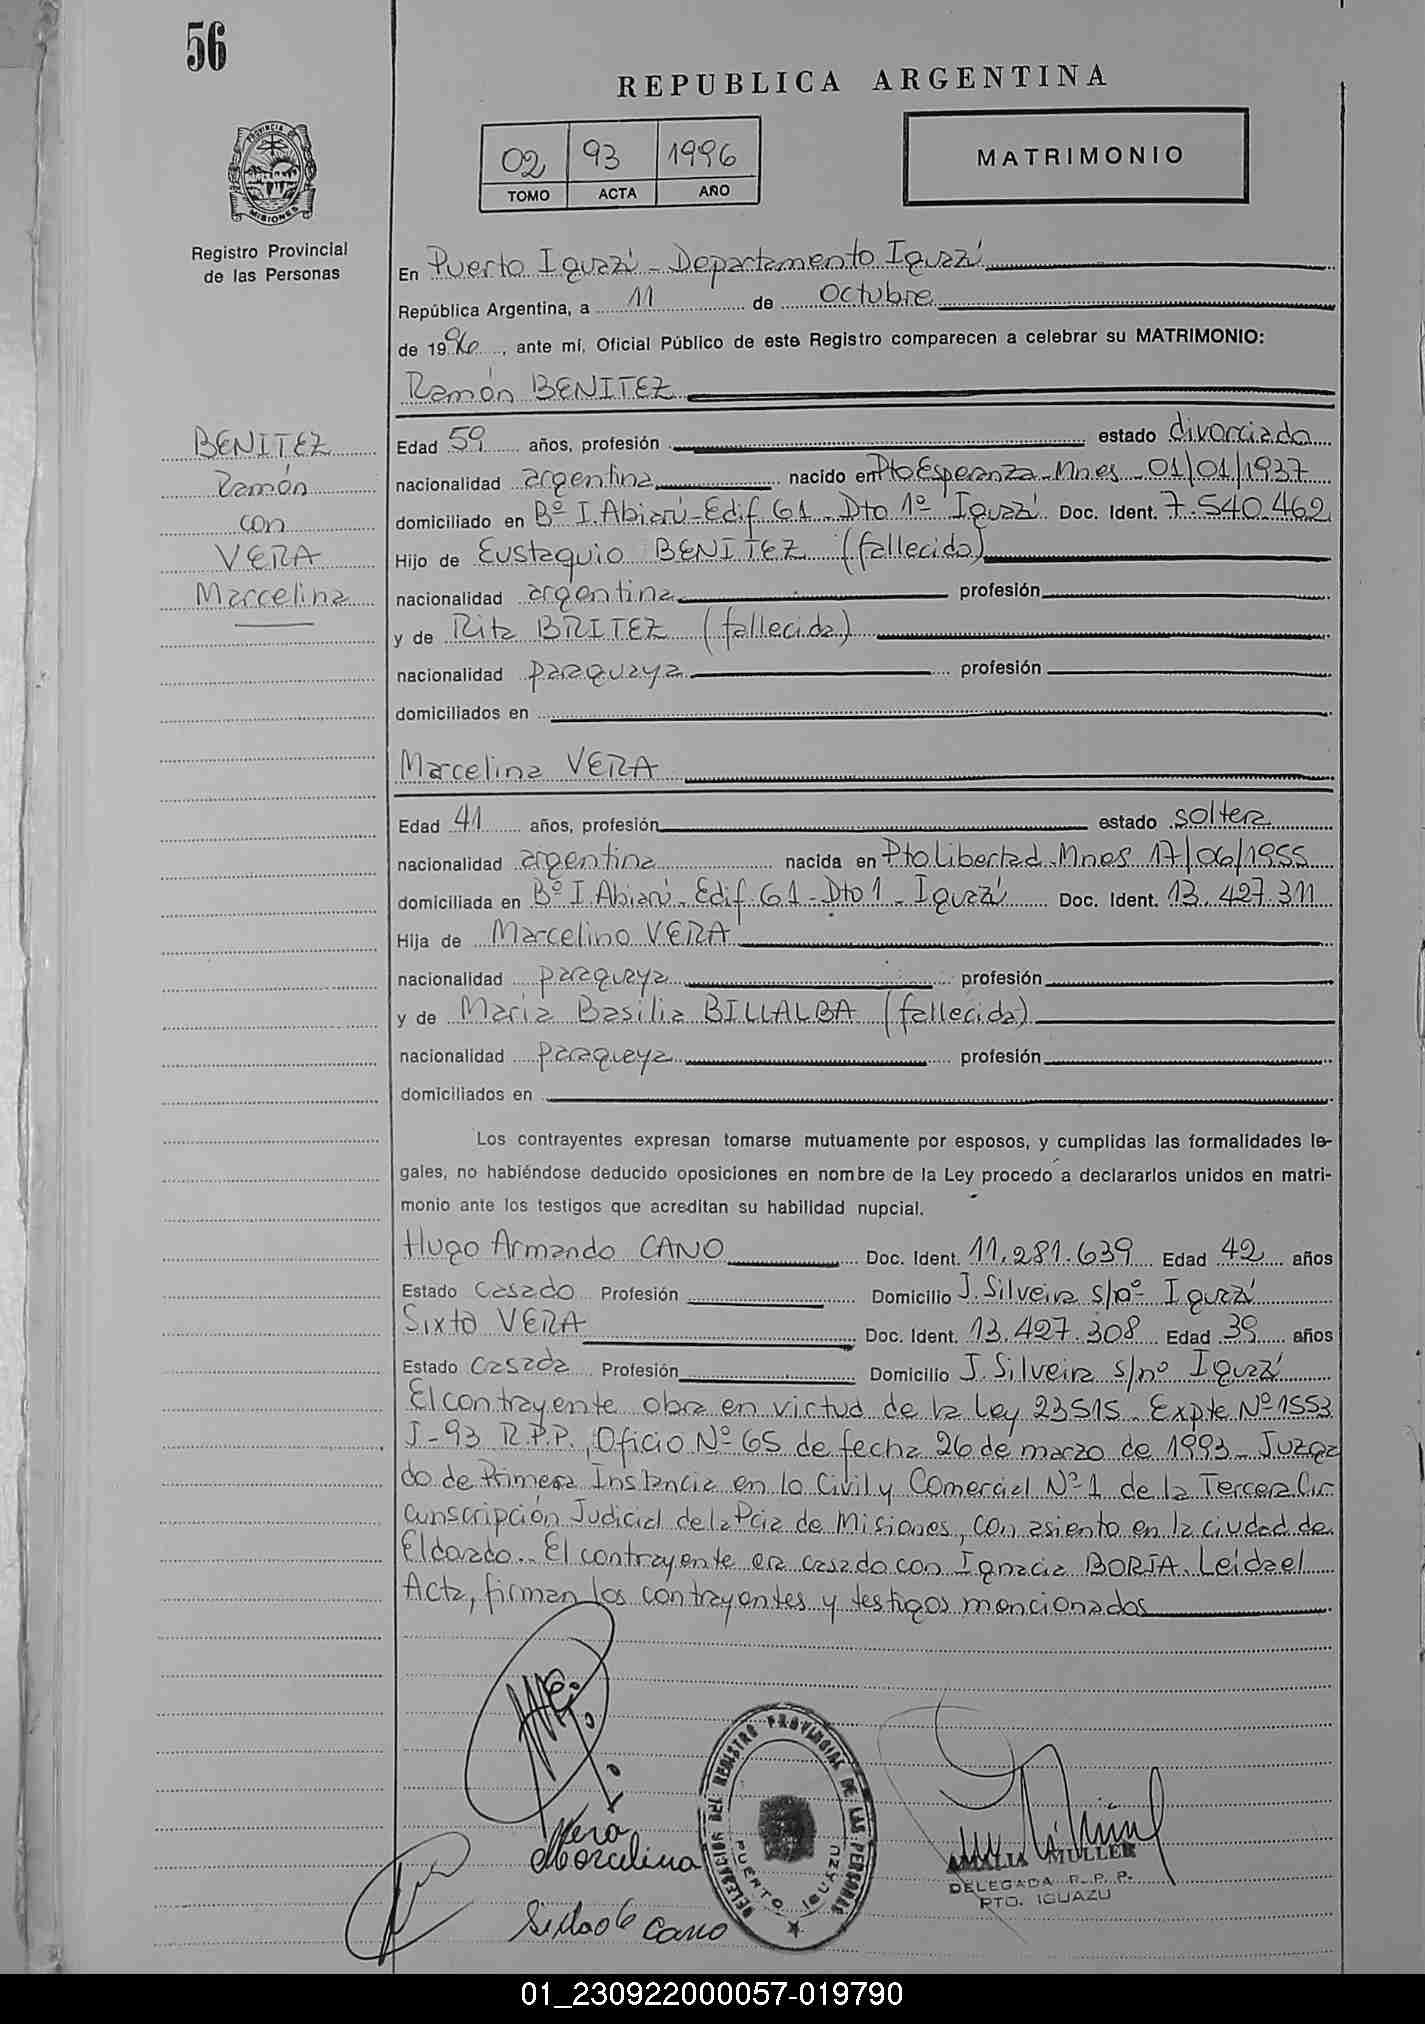 56
REPUBLICA ARGENTINA
02 93 1996
TOMO ACTA AÑO
MATRIMONIO
PROVINCIA DE MISIONES
Registro Provincial
de las Personas
En Puerto Iguazú - Departamento Iguazú
República Argentina, a 11 de octubre
de 1996, ante mí, Oficial Público de este Registro comparecen a celebrar su MATRIMONIO:
Ramón BENITEZ
BENITEZ
Ramón
con
VERA
Marcelina
Edad 59 años, profesión estado divorciado
nacionalidad argentina nacido en Pto Esperanza - Mnes - 01/01/1937
domiciliado en Bº I. Abiarú - Edif. G1 - Dto 1º Iguazú Doc. Ident. 7.540.462
Hijo de Eustaquio BENITEZ (fallecido)
nacionalidad argentina profesión
y de Rita BRITEZ (fallecida)
nacionalidad paraguaya profesión
domiciliados en
Marcelina VERA
Edad 41 años, profesión estado soltera
nacionalidad argentina nacida en Pto Libertad - Mnes 17/06/1955
domiciliada en Bº I. Abiarú - Edif. G1 - Dto 1 - Iguazú Doc. Ident. 13.427.311
Hija de Marcelino VERA
nacionalidad paraguaya profesión
y de Maria Basilia BILLALBA (fallecida)
nacionalidad paraguaya profesión
domiciliados en
Los contrayentes expresan tomarse mutuamente por esposos, y cumplidas las formalidades le-
gales, no habiéndose deducido oposiciones en nombre de la Ley procedo a declararlos unidos en matri-
monio ante los testigos que acreditan su habilidad nupcial.
Hugo Armando CANO Doc. Ident. 11.281.639 Edad 42 años
Estado casado Profesión Domicilio J. Silveira s/nº Iguazú
Sixta VERA Doc. Ident. 13.427.308 Edad 39 años
Estado casada Profesión Domicilio J. Silveira s/nº Iguazú
El contrayente obra en virtud de la Ley 23515 - Expte Nº 1553
J-93 R.P.P., Oficio Nº 65 de fecha 26 de marzo de 1993 - Juzga
do de Primera Instancia en lo Civil y Comercial Nº 1 de la Tercera Cir
cunscripción Judicial de la Pcia de Misiones, con asiento en la ciudad de
Eldorado.. El contrayente era casado con Ignacia BORJA. Leida el
Acta, firman los contrayentes y testigos mencionados
Vera
Marcelina
de Cano
DELEGACION DEL REGISTRO PROVINCIAL DE LAS PERSONAS
PUERTO IGUAZU
AMALIA MULLER
DELEGADA R.P.P.
PTO. IGUAZU
01_230922000057-019790